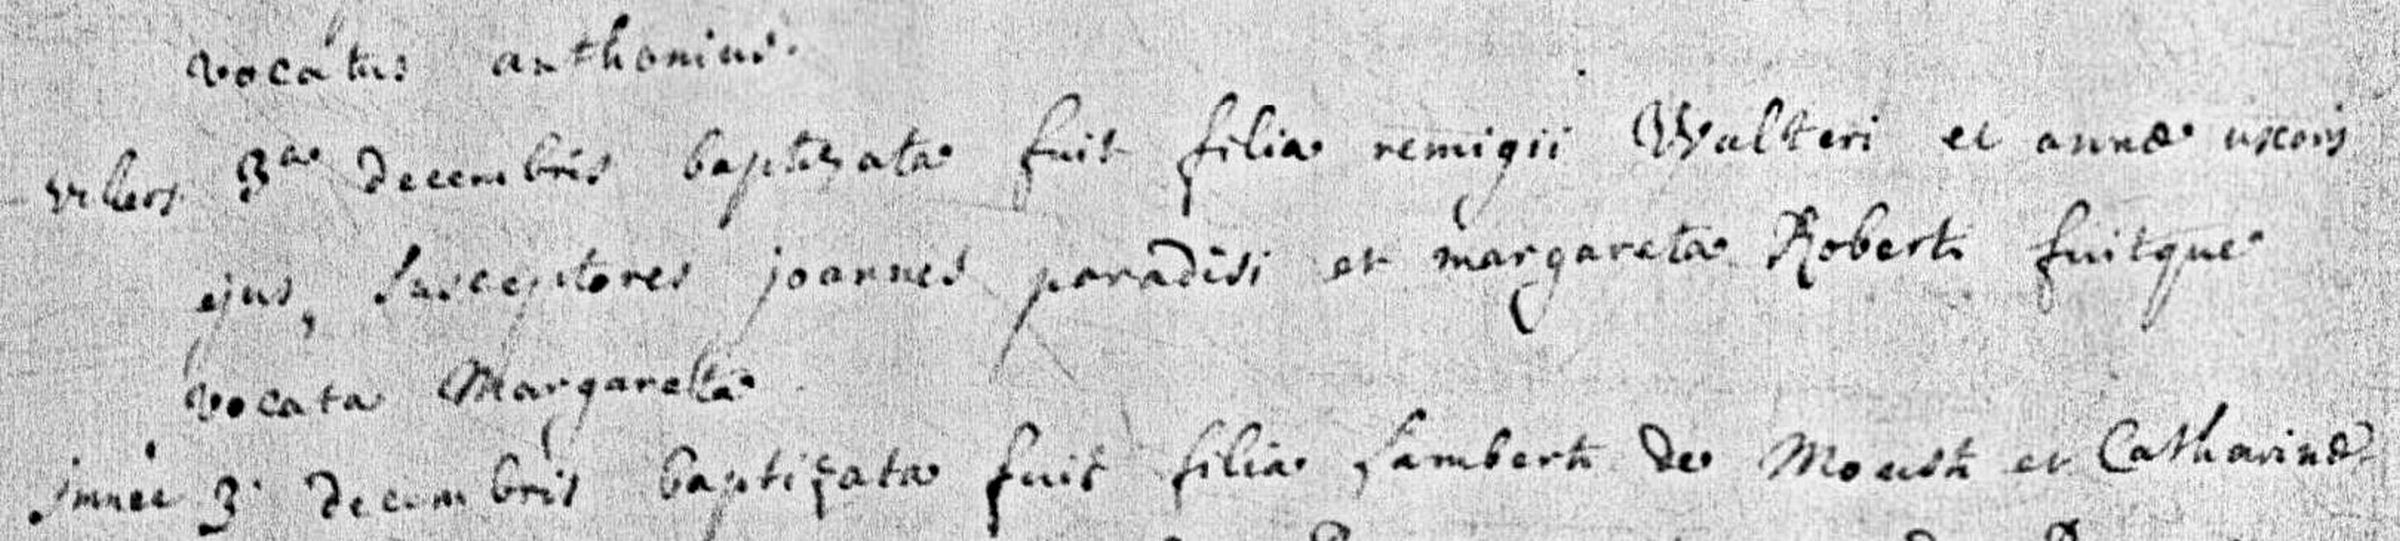 vocatus anthonius.
vilers 3a decembris baptizata fuit filia remigii Walteri et annæ uxoris
ejus, susceptores joannes paradisi et margareta Roberti fuitque
vocata Margareta
3 decembris baptizata fuit filia Lamberti de Mousti et Catharinæ